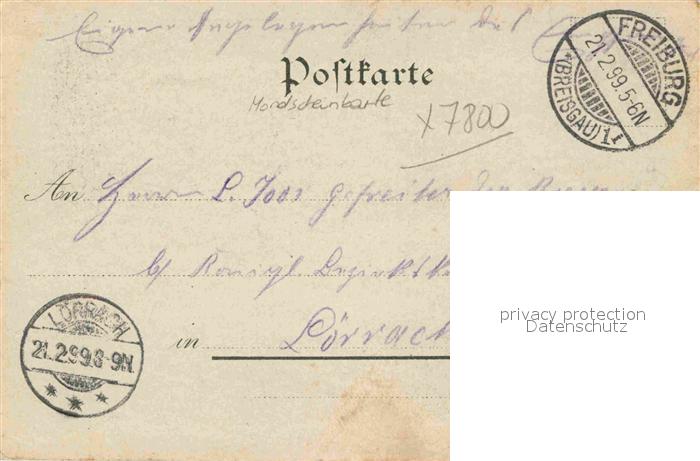 Eigene Angelegenheiten des
Postkarte
Mondscheinkarte
x7800
FREIBURG
21.2.99.5-6N
*(BREISGAU)1r
An Herrn L. Joos Gefreiter der
b/ Königl Bezirksk
LÖRRACH
21.2.99.8-9N.
in Lörrach
privacy protection
Datenschutz